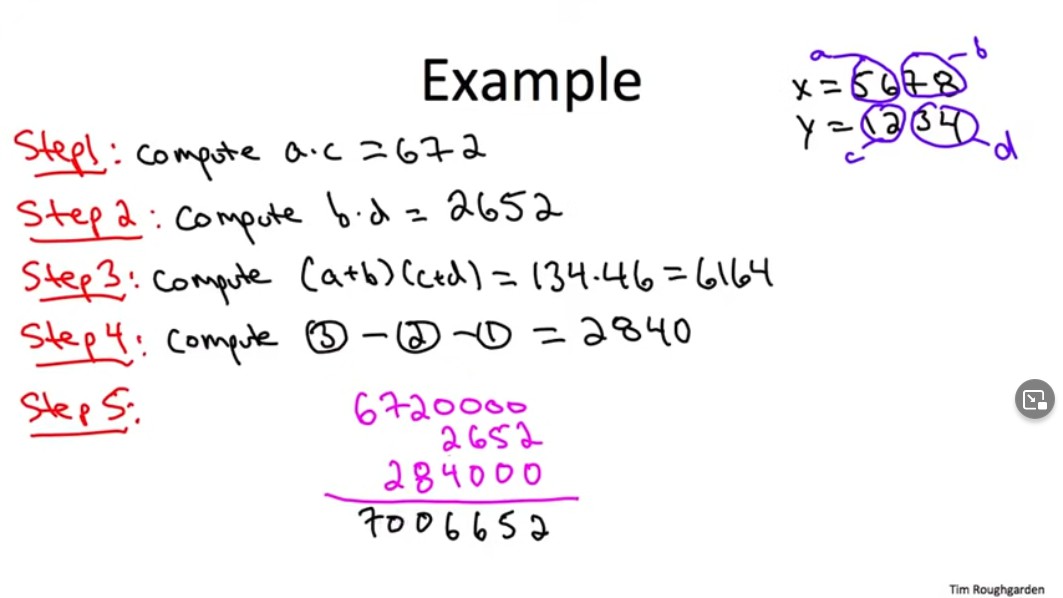 Example
a b
x = 5678
y = 1234
c d
Step1: compute a·c = 672
Step 2: compute b·d = 2652
Step3: compute (a+b)(c+d) = 134·46 = 6164
Step 4: compute ③ - ② - ① = 2840
Step 5:
6720000
2652
284000
7006652
Tim Roughgarden